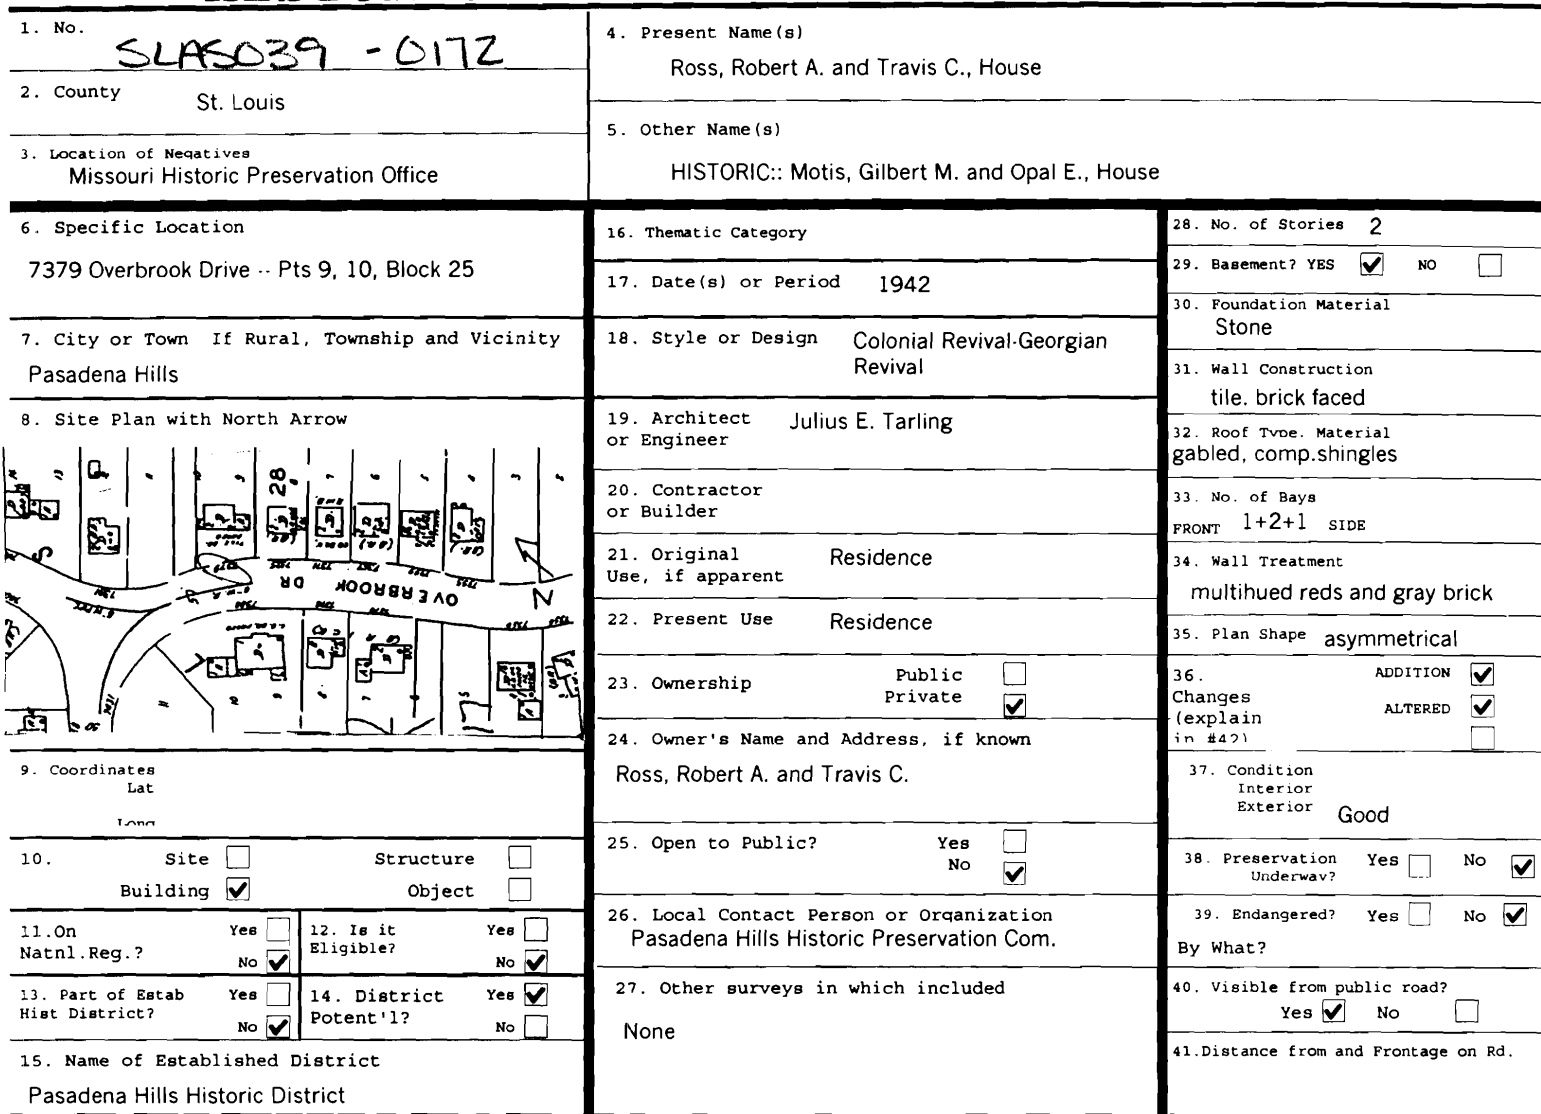 1. No.
SLAS039 -0172
2. County
St. Louis
3. Location of Negatives
Missouri Historic Preservation Office
4. Present Name(s)
Ross, Robert A. and Travis C., House
5. Other Name(s)
HISTORIC:: Motis, Gilbert M. and Opal E., House
6. Specific Location
7379 Overbrook Drive -- Pts 9, 10, Block 25
7. City or Town If Rural, Township and Vicinity
Pasadena Hills
8. Site Plan with North Arrow
28
OVERBROOK DR
N
9. Coordinates
Lat
Long
10. Site Structure
Building Object
11.On Yes
Natnl.Reg.?
No
12. Is it Yes
Eligible?
No
13. Part of Estab Yes
Hist District?
No
14. District Yes
Potent'l?
No
15. Name of Established District
Pasadena Hills Historic District
16. Thematic Category
17. Date(s) or Period 1942
18. Style or Design Colonial Revival-Georgian
Revival
19. Architect Julius E. Tarling
or Engineer
20. Contractor
or Builder
21. Original Residence
Use, if apparent
22. Present Use Residence
23. Ownership Public
Private
24. Owner's Name and Address, if known
Ross, Robert A. and Travis C.
25. Open to Public? Yes
No
26. Local Contact Person or Organization
Pasadena Hills Historic Preservation Com.
27. Other surveys in which included
None
28. No. of Stories 2
29. Basement? YES NO
30. Foundation Material
Stone
31. Wall Construction
tile. brick faced
32. Roof Type. Material
gabled, comp.shingles
33. No. of Bays
FRONT 1+2+1 SIDE
34. Wall Treatment
multihued reds and gray brick
35. Plan Shape asymmetrical
36. ADDITION
Changes
(explain ALTERED
in #42)
37. Condition
Interior
Exterior Good
38. Preservation Yes No
Underway?
39. Endangered? Yes No
By What?
40. Visible from public road?
Yes No
41.Distance from and Frontage on Rd.